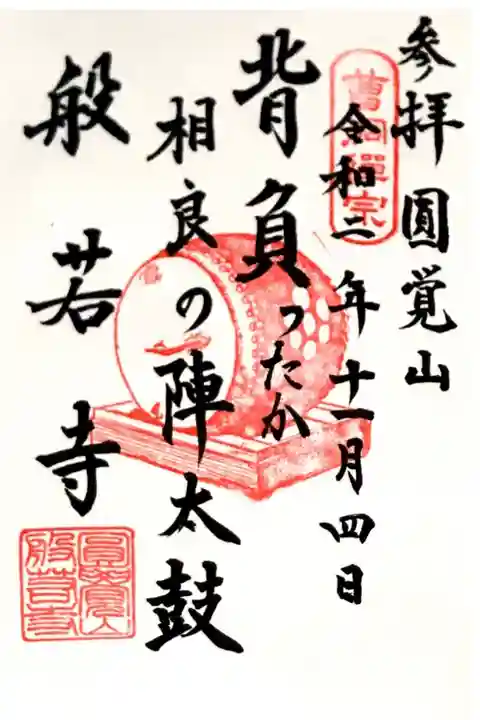 参拝圓覚山
曹洞禅宗
令和二年十一月四日
背負ったか
相良の陣太鼓
般若寺
圓覚山
般若寺